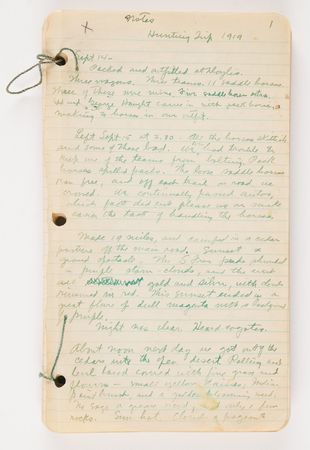 Notes
1
x
Hunting Trip 1919
Sept 14 -
Packed and outfitted at
Three wagons. Three teams. 11 saddle horses.
Three of these are mine. Two saddle horses extra.
Haught came in with pack horses,
making 20 horses in our outfit.
Left Sept 15 at 2.30. All the horses
and some of them bad. had trouble to
keep one of the teams from bolting. Pack
horses spilled packs. The loose saddle horses
ran free, and off each trail or road we
crossed. We continually passed autos,
which fact did not please us or make
easier the task of handling the horses.
Made 19 miles, and camped in a cedar
pasture off the main road. Sunset a
grand spectacle. The S. Fran peaks shrouded
in purple storm-clouds, and the west
all gold and silver, with clouds
rimmed in red. This sunset ended in a
great flare of dull magenta with a background
purple.
Night was clear. Heard coyotes.
About noon next day we got out of the
cedars into the open desert. Rolling and
level land covered with fine grass and
flowers - small yellow daisies, Indian
paint brush, and a golden blossoming weed.
No sage or grease wood, and only a few
rocks. Sun hot. Cloud a pageant